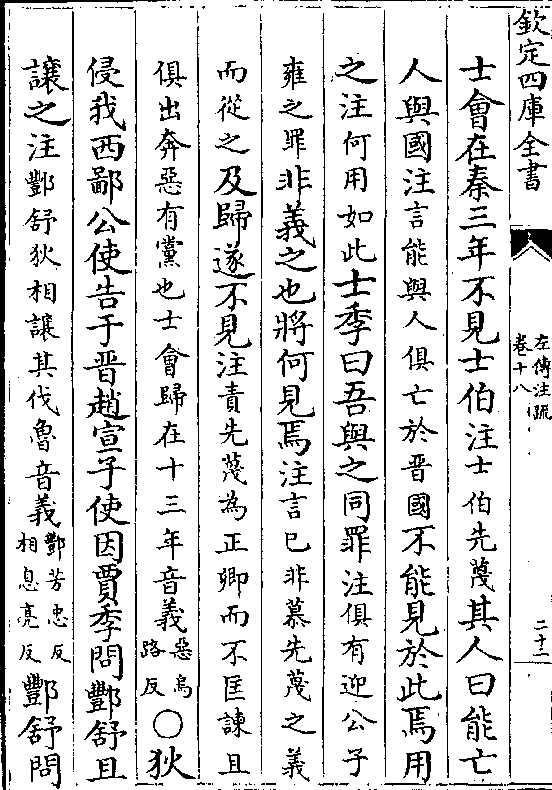 欽定四庫全書
左傳注疏
卷十八
二十二
士會在秦三年不見士伯注士伯先蔑其人曰能亡
人與國注言能與人俱亡於晋國不能見於此焉用
之注何用如此士季曰吾與之同罪注俱有迎公子
雍之罪非義之也將何見焉注言已非慕先蔑之義
而從之及歸遂不見注責先蔑為正卿而不匡諫且
俱出奔惡有黨也士會歸在十三年音義惡烏路反○狄
侵我西鄙公使告于晋趙宣子使因賈季問酆舒且
讓之注酆舒狄相讓其伐魯音義酆芳忠反相息亮反酆舒問